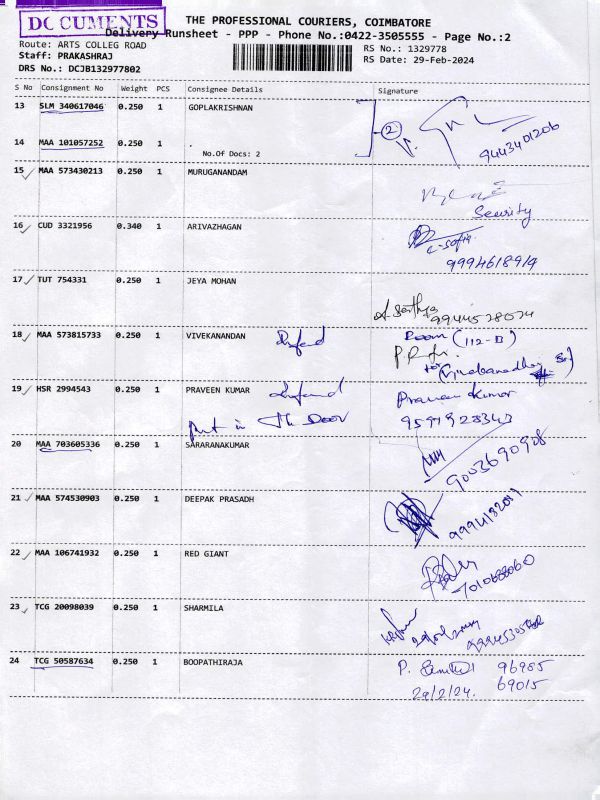 DOCUMENTS
THE PROFESSIONAL COURIERS, COIMBATORE
Delivery Runsheet - PPP - Phone No.:0422-3505555 - Page No.:2
Route: ARTS COLLEG ROAD
RS No.: 1329778
Staff: PRAKASHRAJ
RS Date: 29-Feb-2024
DRS No.: DCJB132977802
S No Consignment No Weight PCS Consignee Details Signature
13 SLM 340617046 0.250 1 GOPLAKRISHNAN
2
14 MAA 101057252 0.250 1 .
9443401206
No.Of Docs: 2
15 MAA 573430213 0.250 1 MURUGANANDAM
Security
16 CUD 3321956 0.340 1 ARIVAZHAGAN
9994618914
17 TUT 754331 0.250 1 JEYA MOHAN
18 MAA 573815733 0.250 1 VIVEKANANDAN
Room (112-B)
19 HSR 2994543 0.250 1 PRAVEEN KUMAR
Praveen Kumar
Put in The Door
9591928343
20 MAA 703605336 0.250 1 SARARANAKUMAR
9003690908
21 MAA 574530903 0.250 1 DEEPAK PRASADH
22 MAA 106741932 0.250 1 RED GIANT
23 TCG 20098039 0.250 1 SHARMILA
24 TCG 50587634 0.250 1 BOOPATHIRAJA
P. 96985
29/2/24. 69015